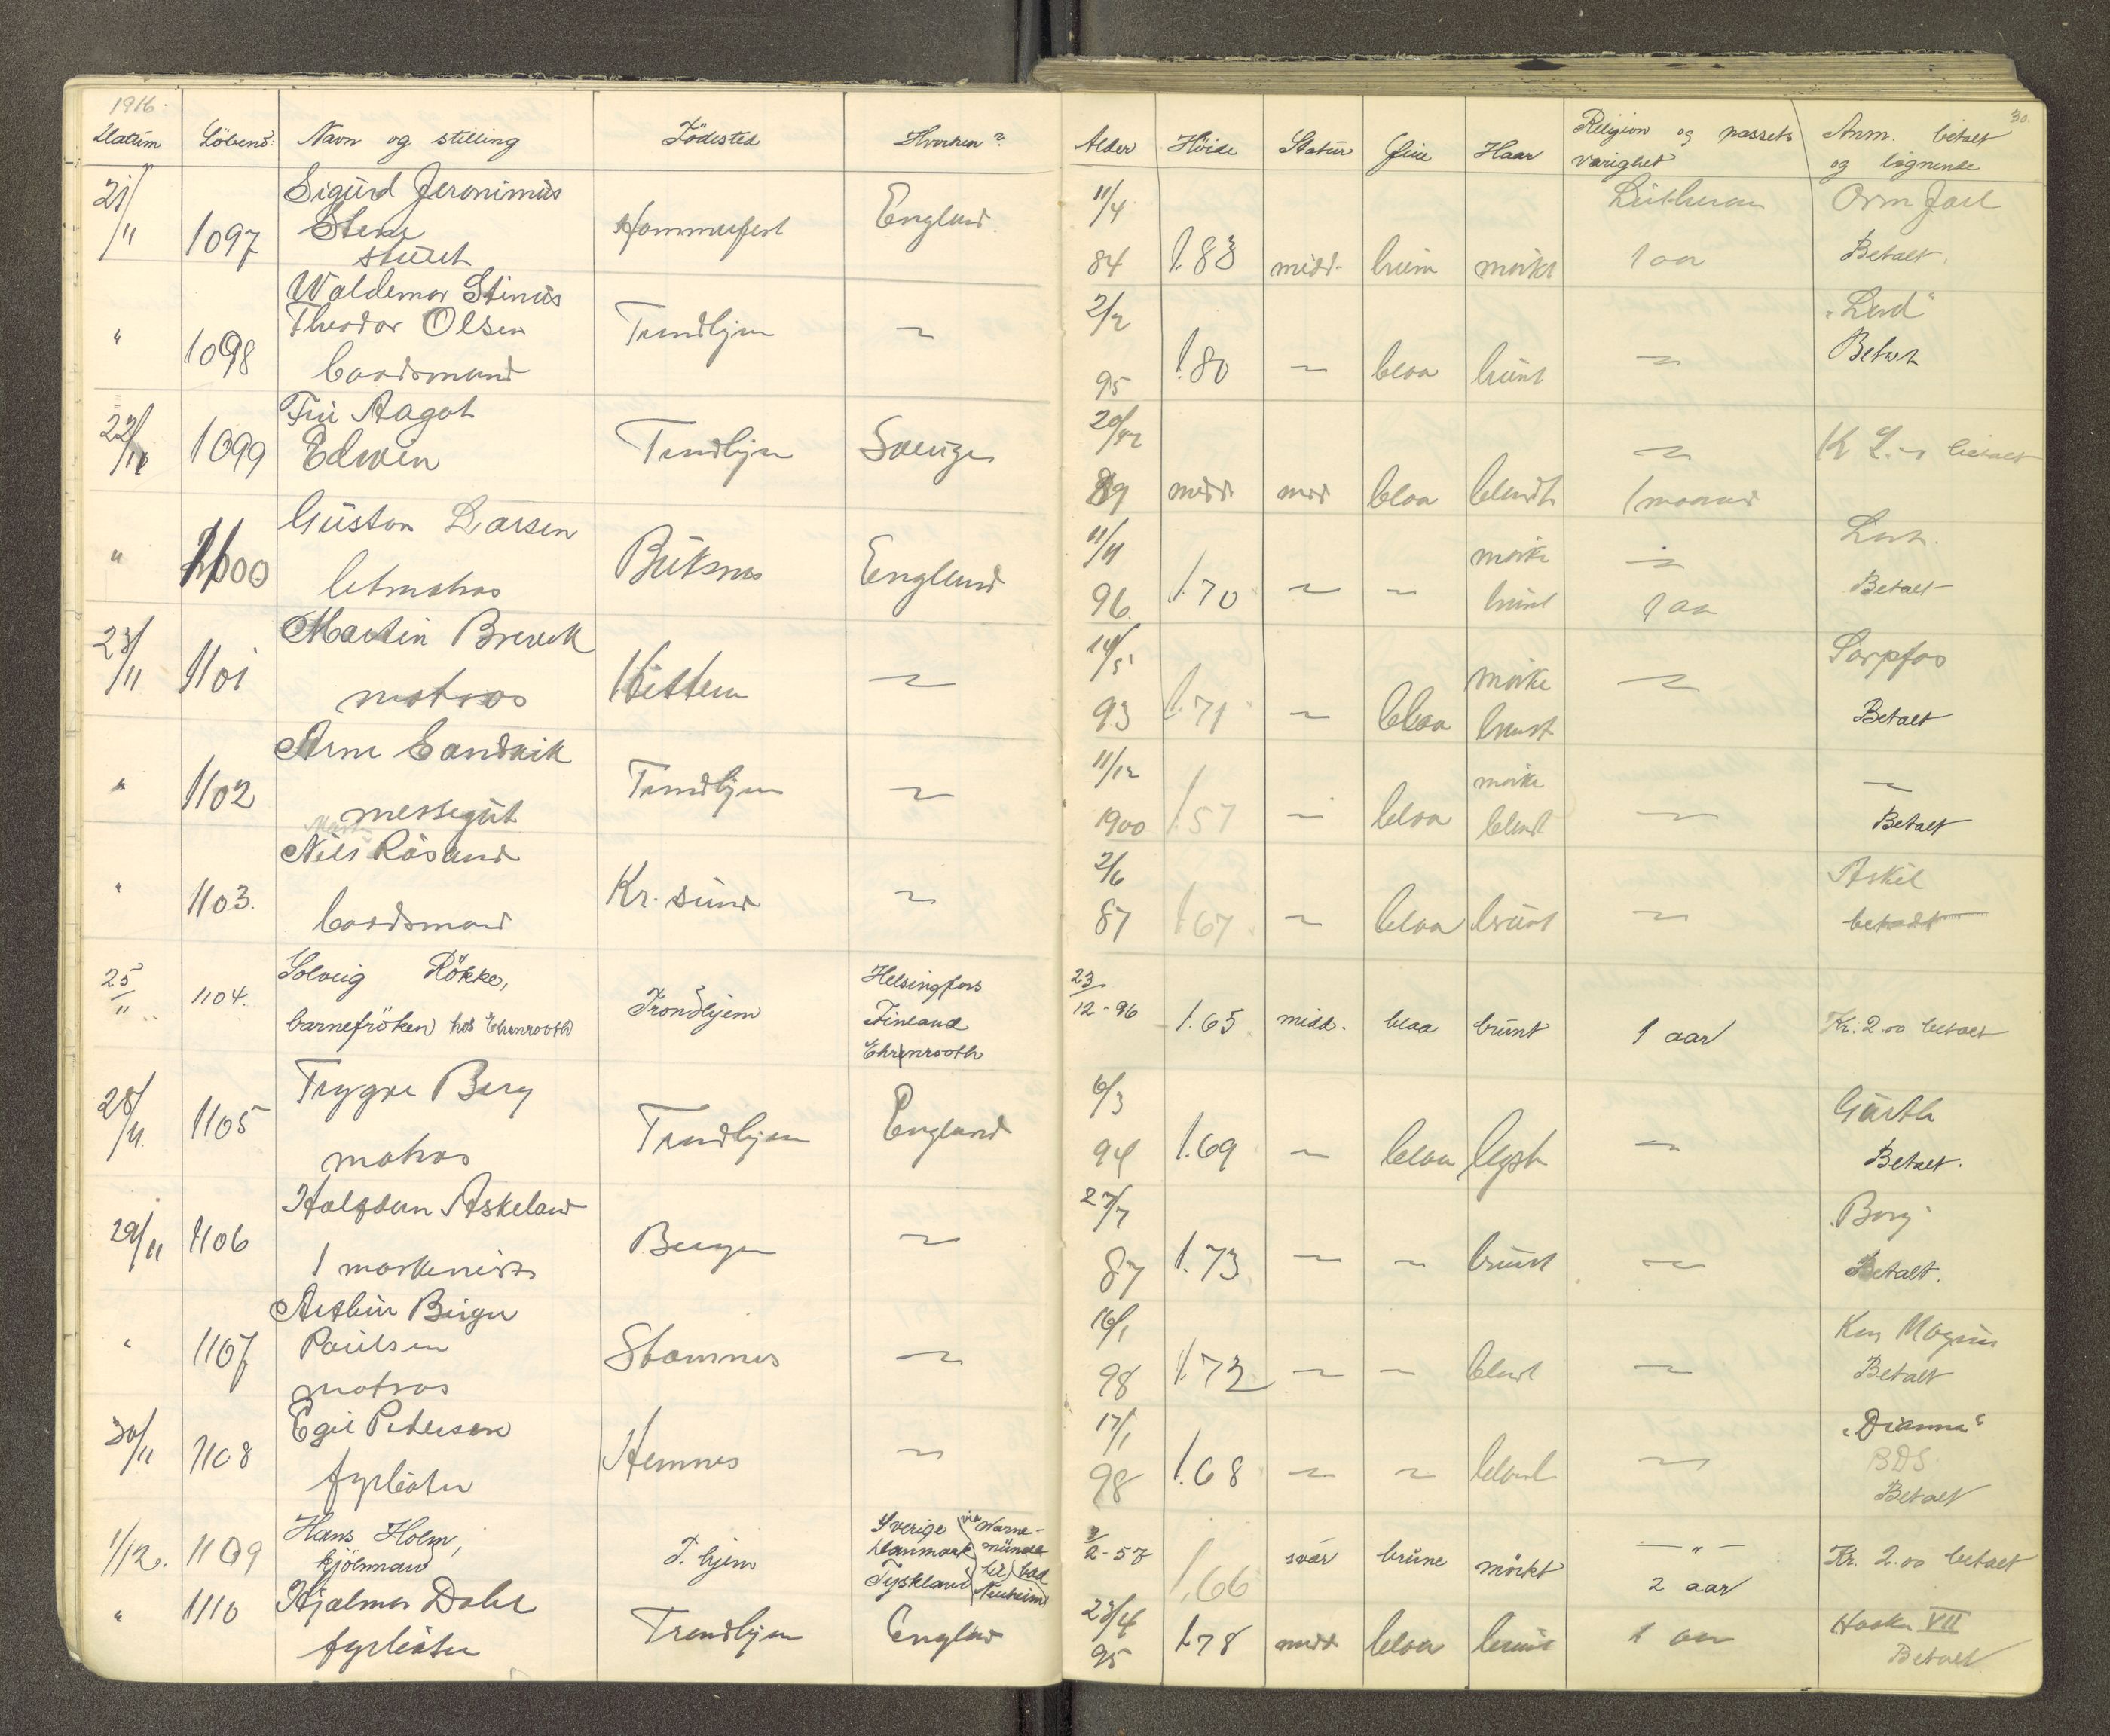 1916.
Datum Löbenr. Navn og stilling Födested Hvorhen? Alder Höide Statur Öine Haar Religion og passets varighet Anm. betalt og lignende 30.
21/11 1097 Sigurd Jeronimus Stene stuert Hammerfest England 11/4 84 1.83 midd. brun mørkt Lutheran 1 aar Orm Jarl Betalt.
" 1098 Waldemar Stinus Theodor Olsen baadsmand Trondhjem ~ 2/2 95 1.80 ~ blaa brunt ~ Betalt
22/11 1099 Fru Aagot Edwin Trondhjem Sverige 89 midd mid blaa blondt ~ 1 maaned betalt
" 1100 Gustav Larsen letmatros Buksnes England 11/11 96. 1.70 ~ ~ mørke brunt ~ 1 aar Betalt
23/11 1101 Martin Brevik matros Hittern ~ 14/5 93 1.71 ~ blaa mørke brunt ~ Sarpfos Betalt
" 1102 Arne Sandvik messegut Trondhjem ~ 11/12 1900 1.57 ~ blaa mørke blond ~ ~ Betalt
" 1103. Nils Råsand baadsmand Kr. sund ~ 2/6 87 1.67 ~ blaa brunt ~ Askil betalt
25/11 1104. Solveig Rökke, barnefröken hos Ehrenrooth Trondhjem Helsingfors Finland Ehrenrooth 23/12-96 1.65 midd. blaa brunt 1 aar Kr. 2.00 betalt
28/11. 1105 Trygve Berg matros Trondhjem England 6/3 94 1.69 ~ blaa lyst ~ Garth Betalt.
29/11 1106 Halfdan Askeland 1 maskinist Bergen ~ 27/7 87 1.73 ~ ~ brunt ~ Borg Betalt.
" 1107 Arthur Birger Paulsen matros Stamnes ~ 16/1 98 1.72 ~ ~ blond ~ Kong Magnus Betalt
30/11 1108 Egil Pedersen fyrböter Hemnes ~ 17/1 98 1.68 ~ ~ blond ~ "Dianna" BDS. Betalt
1/12. 1109 Hans Holm, kjöbmand T. hjem Sverige Danmark Tyskland via Warnemünde til bad Neuheim 2-57 1.66 svär brune mörkt — " — 2 aar Kr. 2.00 betalt
" 1110 Hjalmar Dahl fyrböter Trondhjem England 23/4 95 1.78 midd blaa brunt 1 aar Haakon VII Betalt